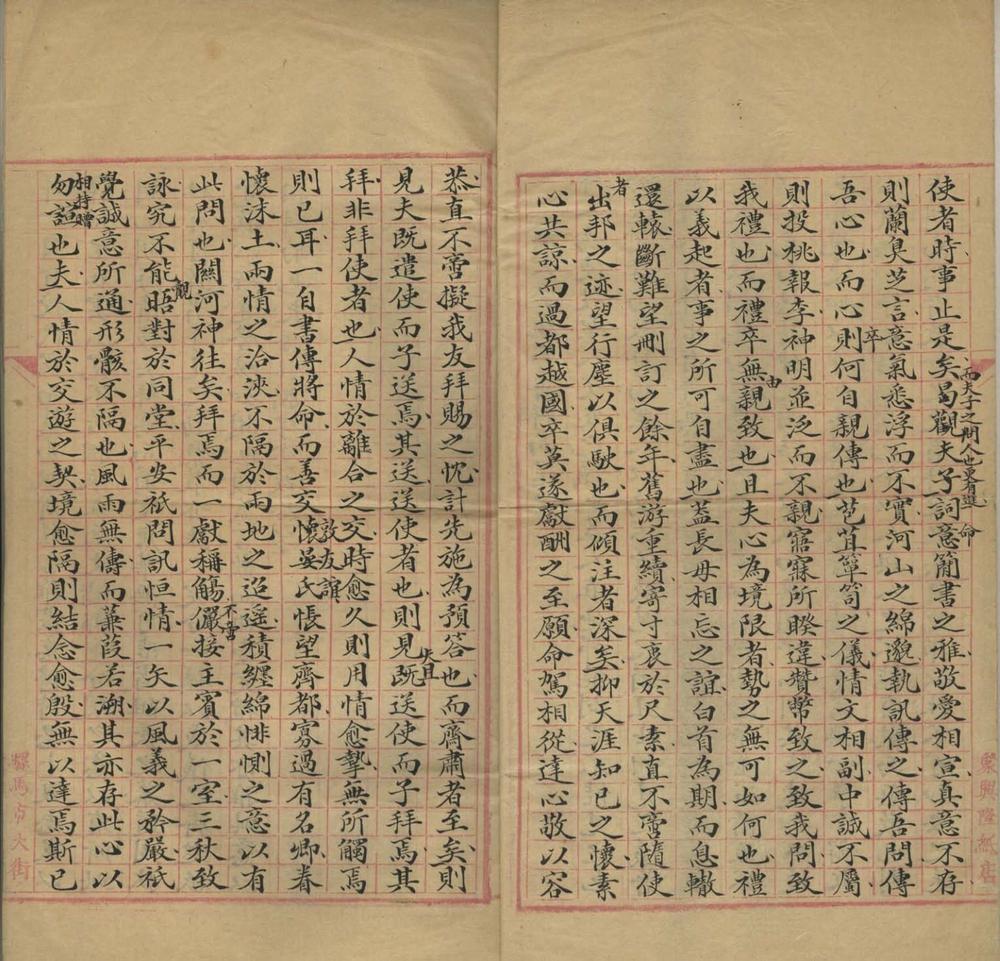 使者時事止是矣曷觀夫子詞意簡書之雅敬愛相宣真意不存
而夫子之問人也更有進 命
則蘭臭芝言意氣悉浮而不實河山之綿邈執訊傳之傳吾問傳
吾心也而心則何自親傳也苞苴簞笥之儀情文相副中誠不屬
卒
則投桃報李神明並泛而不親寤寐所睽違贄幣致之致我問致
我禮也而禮卒無親致也且夫心為境限者勢之無可如何也禮
由
以義起者事之所可自盡也蓋長毋相忘之誼白首為期而息轍
還轅斷難望刪訂之餘年舊游重續寄寸衷於尺素直不啻隨使
者
出邦之迹望行塵以俱馳也而傾注者深矣抑天涯知己之懷素
心共諒而過都越國卒莫遂獻酬之至願命駕相從達心敬以容
聚興隆紙店
恭直不啻擬我友拜賜之忱計先施為預答也而齋肅者至矣則
見夫既遣使而子送焉其送送使者也則見既送使而子拜焉其
失且
拜非拜使者也人情於離合之交時愈久則用情愈摯無所觸焉
則已耳一自書傳將命而善交懷晏氏悵望齊都寡過有名卿眷
敦友誼
懷沬土兩情之洽浹不隔於兩地之迢遥積纏綿悱惻之意以有
此問也關河神往矣拜焉而一獻稱觴儼接主賓於一室三秋致
不啻
詠究不能晤對於同堂平安祇問訊恒情一矣以風義之矜嚴祇
覿
覺誠意所通形骸不隔也風雨無傳而蒹葭若溯其亦存此心以
相持贈
勿諠也夫人情於交遊之契境愈隔則結念愈殷無以達焉斯已
騾馬市大街